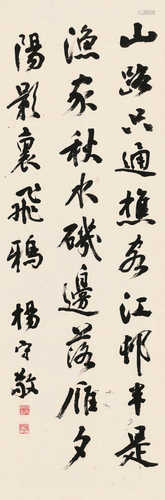 山路只通樵客江邨半是
漁家秋水磯邊落雁夕
陽影裏飛鴉 楊守敬